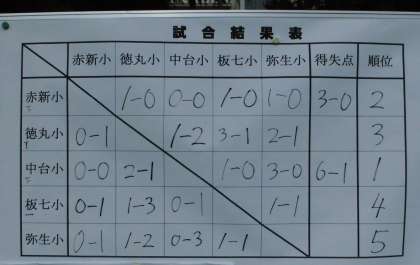 試合結果表
赤新小 徳丸小 中台小 板七小 弥生小 得失点 順位
赤新小 1-0 0-0 1-0 1-0 3-0 2
徳丸小 0-1 1-2 3-1 2-1 3
中台小 0-0 2-1 1-0 3-0 6-1 1
板七小 0-1 1-3 0-1 1-1 4
弥生小 0-1 1-2 0-3 1-1 5